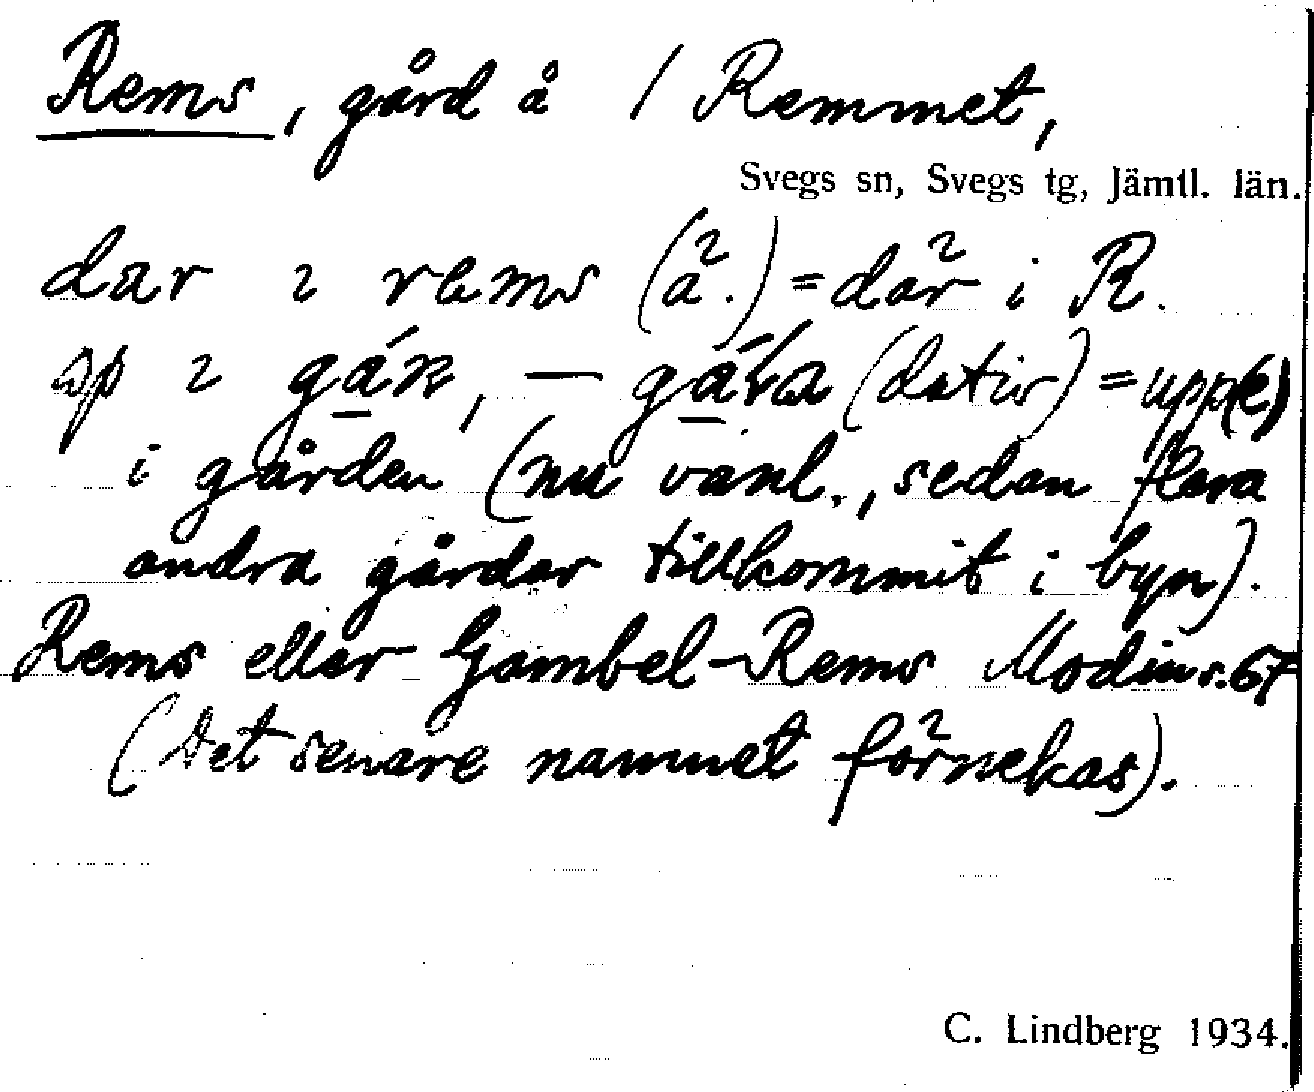 Rems, gård å 1 Remmet,
Svegs sn, Svegs tg, Jämtl. län.
dar ı rems (ä.) = där i R.
op ı gáɴ, — gáɽa (dativ) = upp(e)
i gården (nu vanl., sedan flera
andra gårdar tillkommit i byn).
Rems eller Gambel-Rems Modin s. 67
(Det senare namnet förnekas).
C. Lindberg 1934.